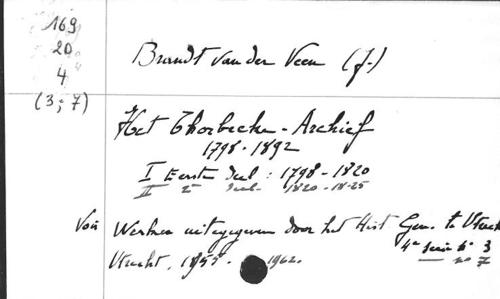 169
20
4
(3; 7)
Brandt van der Veen (J.)
Het Thorbecke-Archief
1798-1892
I Eerste deel : 1798-1820
II 2e deel 1820-1825
Voir Werken uitgegeven door het Hist Gen. te Utrecht
4e serie no 3
no 7
Utrecht, 1955. - 1962.